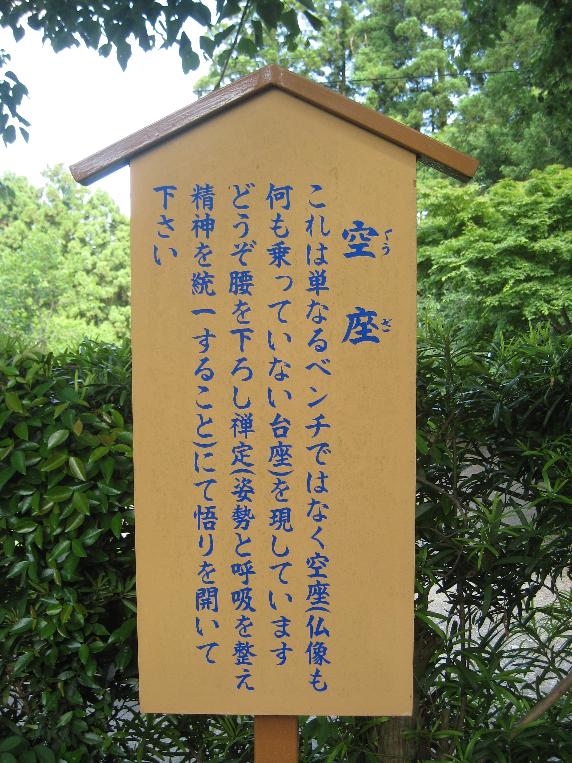 空座
くうざ
これは単なるベンチではなく空座(仏像も
何も乗っていない台座)を現しています
どうぞ腰を下ろし禅定(姿勢と呼吸を整え
精神を統一すること)にて悟りを開いて
下さい